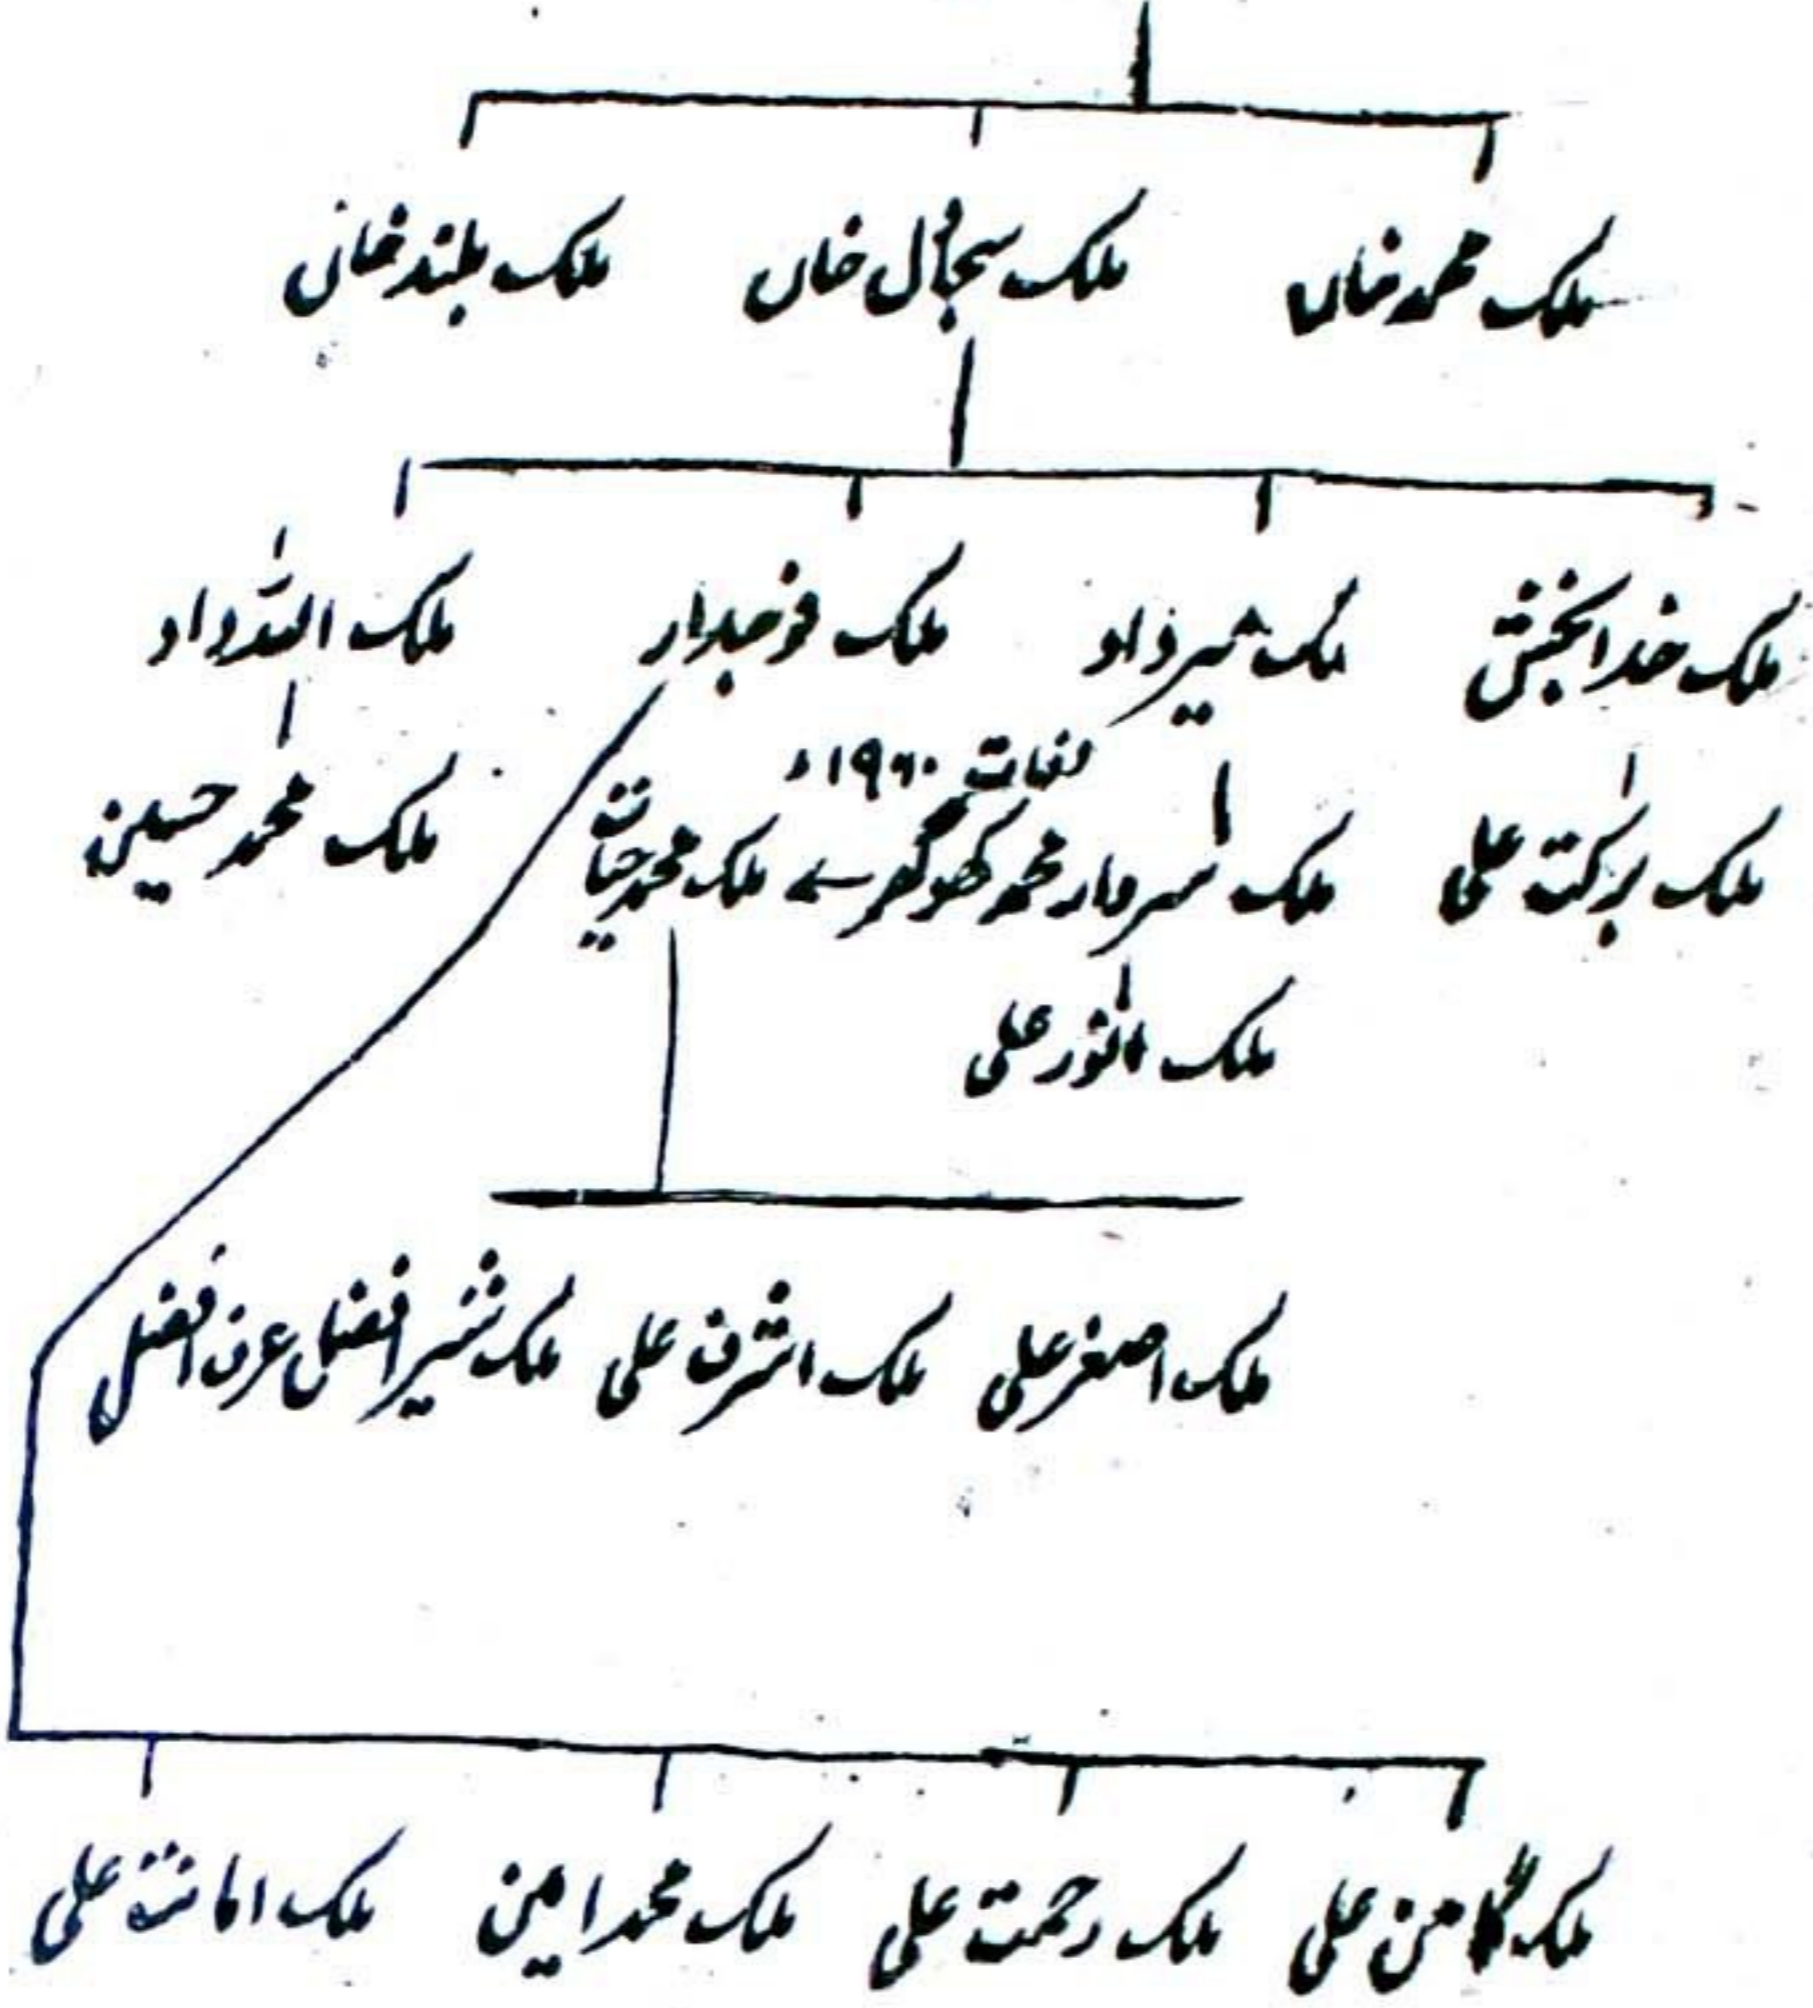 ملک محمد خاں ملک سجاول خاں ملک بلند خاں
ملک خدا بخش ملک شیر داد ملک فوجدار ملک اللہ داد
وفات ۱۹۶۰ء
ملک برکت علی ملک سردار محمد کھوکھر سے ملک محمد حیات ملک محمد حسین
ملک انور علی
ملک اصغر علی ملک اشرف علی ملک شیر افضل عرف افضل
ملک علی ملک رحمت علی ملک محمد امین ملک امانت علی